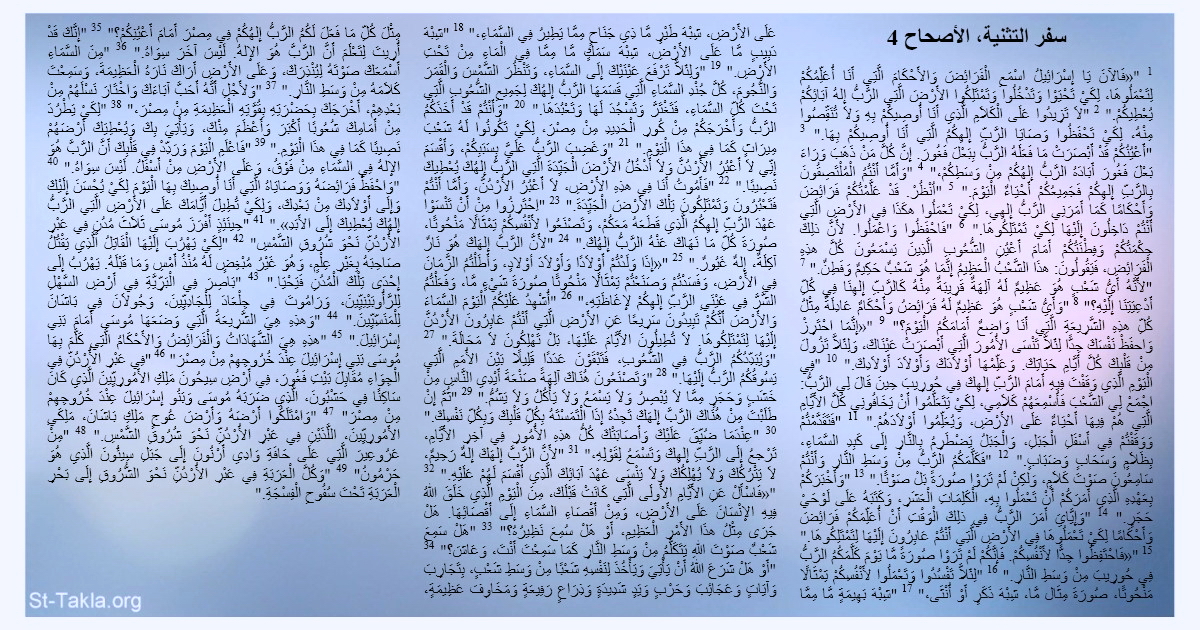 سفر التثنية، الأصحاح 4
1 "«فَالآنَ يَا إِسْرَائِيلُ اسْمَعِ الْفَرَائِضَ وَالأَحْكَامَ الَّتِي أَنَا أُعَلِّمُكُمْ
لِتَعْمَلُوهَا، لِكَيْ تَحْيَوْا وَتَدْخُلُوا وَتَمْتَلِكُوا الأَرْضَ الَّتِي الرَّبُّ إِلهُ آبَائِكُمْ
يُعْطِيكُمْ." 2 "لاَ تَزِيدُوا عَلَى الْكَلاَمِ الَّذِي أَنَا أُوصِيكُمْ بِهِ وَلاَ تُنَقِّصُوا
مِنْهُ، لِكَيْ تَحْفَظُوا وَصَايَا الرَّبِّ إِلهِكُمُ الَّتِي أَنَا أُوصِيكُمْ بِهَا." 3
"أَعْيُنُكُمْ قَدْ أَبْصَرَتْ مَا فَعَلَهُ الرَّبُّ بِبَعْلَ فَغُورَ. إِنَّ كُلَّ مَنْ ذَهَبَ وَرَاءَ
بَعْلَ فَغُورَ أَبَادَهُ الرَّبُّ إِلهُكُمْ مِنْ وَسَطِكُمْ،" 4 "وَأَمَّا أَنْتُمُ الْمُلْتَصِقُونَ
بِالرَّبِّ إِلهِكُمْ فَجَمِيعُكُمْ أَحْيَاءٌ الْيَوْمَ." 5 "اُنْظُرْ. قَدْ عَلَّمْتُكُمْ فَرَائِضَ
وَأَحْكَامًا كَمَا أَمَرَنِي الرَّبُّ إِلهِي، لِكَيْ تَعْمَلُوا هكَذَا فِي الأَرْضِ الَّتِي
أَنْتُمْ دَاخِلُونَ إِلَيْهَا لِكَيْ تَمْتَلِكُوهَا." 6 "فَاحْفَظُوا وَاعْمَلُوا. لأَنَّ ذلِكَ
حِكْمَتُكُمْ وَفِطْنَتُكُمْ أَمَامَ أَعْيُنِ الشُّعُوبِ الَّذِينَ يَسْمَعُونَ كُلَّ هذِهِ
الْفَرَائِضِ، فَيَقُولُونَ: هذَا الشَّعْبُ الْعَظِيمُ إِنَّمَا هُوَ شَعْبٌ حَكِيمٌ وَفَطِنٌ." 7
"لأَنَّهُ أَيُّ شَعْبٍ هُوَ عَظِيمٌ لَهُ آلِهَةٌ قَرِيبَةٌ مِنْهُ كَالرَّبِّ إِلهِنَا فِي كُلِّ
أَدْعِيَتِنَا إِلَيْهِ؟" 8 "وَأَيُّ شَعْبٍ هُوَ عَظِيمٌ لَهُ فَرَائِضُ وَأَحْكَامٌ عَادِلَةٌ مِثْلُ
كُلِّ هذِهِ الشَّرِيعَةِ الَّتِي أَنَا وَاضِعٌ أَمَامَكُمُ الْيَوْمَ؟" 9 "«إِنَّمَا احْتَرِزْ
وَاحفَظْ نَفْسَكَ جِدًّا لِئَلاَّ تَنْسَى الأُمُورَ الَّتِي أَبْصَرَتْ عَيْنَاكَ، وَلِئَلاَّ تَزُولَ
مِنْ قَلْبِكَ كُلَّ أَيَّامِ حَيَاتِكَ. وَعَلِّمْهَا أَوْلاَدَكَ وَأَوْلاَدَ أَوْلاَدِكَ." 10 "فِي
الْيَوْمِ الَّذِي وَقَفْتَ فِيهِ أَمَامَ الرَّبِّ إِلهِكَ فِي حُورِيبَ حِينَ قَالَ لِي الرَّبُّ:
اجْمَعْ لِي الشَّعْبَ فَأُسْمِعَهُمْ كَلاَمِي، لِكَيْ يَتَعَلَّمُوا أَنْ يَخَافُونِي كُلَّ الأَيَّامِ
الَّتِي هُمْ فِيهَا أَحْيَاءٌ عَلَى الأَرْضِ، وَيُعَلِّمُوا أَوْلاَدَهُمْ." 11 "فَتَقَدَّمْتُمْ
وَوَقَفْتُمْ فِي أَسْفَلِ الْجَبَلِ، وَالْجَبَلُ يَضْطَرِمُ بِالنَّارِ إِلَى كَبِدِ السَّمَاءِ،
بِظَلاَمٍ وَسَحَابٍ وَضَبَابٍ." 12 "فَكَلَّمَكُمُ الرَّبُّ مِنْ وَسَطِ النَّارِ وَأَنْتُمْ
سَامِعُونَ صَوْتَ كَلاَمٍ، وَلكِنْ لَمْ تَرَوْا صُورَةً بَلْ صَوْتًا." 13 "وَأَخْبَرَكُمْ
بِعَهْدِهِ الَّذِي أَمَرَكُمْ أَنْ تَعْمَلُوا بِهِ، الْكَلِمَاتِ الْعَشَرِ، وَكَتَبَهُ عَلَى لَوْحَيْ
حَجَرٍ." 14 "وَإِيَّايَ أَمَرَ الرَّبُّ فِي ذلِكَ الْوَقْتِ أَنْ أُعَلِّمَكُمْ فَرَائِضَ
وَأَحْكَامًا لِكَيْ تَعْمَلُوهَا فِي الأَرْضِ الَّتِي أَنْتُمْ عَابِرُونَ إِلَيْهَا لِتَمْتَلِكُوهَا "
15 "«فَاحْتَفِظُوا جِدًّا لأَنْفُسِكُمْ. فَإِنَّكُمْ لَمْ تَرَوْا صُورَةً مَّا يَوْمَ كَلَّمَكُمُ الرَّبُّ
فِي حُورِيبَ مِنْ وَسَطِ النَّارِ." 16 "لِئَلاَّ تَفْسُدُوا وَتَعْمَلُوا لأَنْفُسِكُمْ تِمْثَالاً
مَنْحُوتًا، صُورَةَ مِثَال مَّا، شِبْهَ ذَكَرٍ أَوْ أُنْثَى،" 17 "شِبْهَ بَهِيمَةٍ مَّا مِمَّا
عَلَى الأَرْضِ، شِبْهَ طَيْرٍ مَّا ذِي جَنَاحٍ مِمَّا يَطِيرُ فِي السَّمَاءِ،" 18 "شِبْهَ
دَبِيبٍ مَّا عَلَى الأَرْضِ، شِبْهَ سَمَكٍ مَّا مِمَّا فِي الْمَاءِ مِنْ تَحْتِ
الأَرْضِ." 19 "وَلِئَلاَّ تَرْفَعَ عَيْنَيْكَ إِلَى السَّمَاءِ، وَتَنْظُرَ الشَّمْسَ وَالْقَمَرَ
وَالنُّجُومَ، كُلَّ جُنْدِ السَّمَاءِ الَّتِي قَسَمَهَا الرَّبُّ إِلهُكَ لِجَمِيعِ الشُّعُوبِ الَّتِي
تَحْتَ كُلِّ السَّمَاءِ، فَتَغْتَرَّ وَتَسْجُدَ لَهَا وَتَعْبُدَهَا." 20 "وَأَنْتُمْ قَدْ أَخَذَكُمُ
الرَّبُّ وَأَخْرَجَكُمْ مِنْ كُورِ الْحَدِيدِ مِنْ مِصْرَ، لِكَيْ تَكُونُوا لَهُ شَعْبَ
مِيرَاثٍ كَمَا فِي هذَا الْيَوْمِ." 21 "وَغَضِبَ الرَّبُّ عَلَيَّ بِسَبَبِكُمْ، وَأَقْسَمَ
إِنِّي لاَ أَعْبُرُ الأُرْدُنَّ وَلاَ أَدْخُلُ الأَرْضَ الْجَيِّدَةَ الَّتِي الرَّبُّ إِلهُكَ يُعْطِيكَ
نَصِيبًا." 22 "فَأَمُوتُ أَنَا فِي هذِهِ الأَرْضِ، لاَ أَعْبُرُ الأُرْدُنَّ، وَأَمَّا أَنْتُمْ
فَتَعْبُرُونَ وَتَمْتَلِكُونَ تِلْكَ الأَرْضَ الْجَيِّدَةَ." 23 "اِحْتَرِزُوا مِنْ أَنْ تَنْسَوْا
عَهْدَ الرَّبِّ إِلهِكُمُ الَّذِي قَطَعَهُ مَعَكُمْ، وَتَصْنَعُوا لأَنْفُسِكُمْ تِمْثَالاً مَنْحُوتًا،
صُورَةَ كُلِّ مَا نَهَاكَ عَنْهُ الرَّبُّ إِلهُكَ." 24 "لأَنَّ الرَّبَّ إِلهَكَ هُوَ نَارٌ
آكِلَةٌ، إِلهٌ غَيُورٌ." 25 "«إِذَا وَلَدْتُمْ أَوْلاَدًا وَأَوْلاَدَ أَوْلاَدٍ، وَأَطَلْتُمُ الزَّمَانَ
فِي الأَرْضِ، وَفَسَدْتُمْ وَصَنَعْتُمْ تِمْثَالاً مَنْحُوتًا صُورَةَ شَيْءٍ مَّا، وَفَعَلْتُمُ
الشَّرَّ فِي عَيْنَيِ الرَّبِّ إِلهِكُمْ لإِغَاظَتِهِ،" 26 "أُشْهِدُ عَلَيْكُمُ الْيَوْمَ السَّمَاءَ
وَالأَرْضَ أَنَّكُمْ تَبِيدُونَ سَرِيعًا عَنِ الأَرْضِ الَّتِي أَنْتُمْ عَابِرُونَ الأُرْدُنَّ
إِلَيْهَا لِتَمْتَلِكُوهَا. لاَ تُطِيلُونَ الأَيَّامَ عَلَيْهَا، بَلْ تَهْلِكُونَ لاَ مَحَالَةَ." 27
"وَيُبَدِّدُكُمُ الرَّبُّ فِي الشُّعُوبِ، فَتَبْقَوْنَ عَدَدًا قَلِيلاً بَيْنَ الأُمَمِ الَّتِي
يَسُوقُكُمُ الرَّبُّ إِلَيْهَا." 28 "وَتَصْنَعُونَ هُنَاكَ آلِهَةً صَنْعَةَ أَيْدِي النَّاسِ مِنْ
خَشَبٍ وَحَجَرٍ مِمَّا لاَ يُبْصِرُ وَلاَ يَسْمَعُ وَلاَ يَأْكُلُ وَلاَ يَشُمُّ." 29 "ثُمَّ إِنْ
طَلَبْتَ مِنْ هُنَاكَ الرَّبَّ إِلهَكَ تَجِدْهُ إِذَا الْتَمَسْتَهُ بِكُلِّ قَلْبِكَ وَبِكُلِّ نَفْسِكَ."
30 "عِنْدَمَا ضُيِّقَ عَلَيْكَ وَأَصَابَتْكَ كُلُّ هذِهِ الأُمُورِ فِي آخِرِ الأَيَّامِ،
تَرْجعُ إِلَى الرَّبِّ إِلهِكَ وَتَسْمَعُ لِقَوْلِهِ،" 31 "لأَنَّ الرَّبَّ إِلهَكَ إِلهٌ رَحِيمٌ،
لاَ يَتْرُكُكَ وَلاَ يُهْلِكُكَ وَلاَ يَنْسَى عَهْدَ آبَائِكَ الَّذِي أَقْسَمَ لَهُمْ عَلَيْهِ." 32
"«فَاسْأَلْ عَنِ الأَيَّامِ الأُولَى الَّتِي كَانَتْ قَبْلَكَ، مِنَ الْيَوْمِ الَّذِي خَلَقَ اللهُ
فِيهِ الإِنْسَانَ عَلَى الأَرْضِ، وَمِنْ أَقْصَاءِ السَّمَاءِ إِلَى أَقْصَائِهَا. هَلْ
جَرَى مِثْلُ هذَا الأَمْرِ الْعَظِيمِ، أَوْ هَلْ سُمِعَ نَظِيرُهُ؟" 33 "هَلْ سَمِعَ
شَعْبٌ صَوْتَ اللهِ يَتَكَلَّمُ مِنْ وَسَطِ النَّارِ كَمَا سَمِعْتَ أَنْتَ، وَعَاشَ؟" 34
"أَوْ هَلْ شَرَعَ اللهُ أَنْ يَأْتِيَ وَيَأْخُذَ لِنَفْسِهِ شَعْبًا مِنْ وَسَطِ شَعْبٍ، بِتَجَارِبَ
وَآيَاتٍ وَعَجَائِبَ وَحَرْبٍ وَيَدٍ شَدِيدَةٍ وَذِرَاعٍ رَفِيعَةٍ وَمَخَاوِفَ عَظِيمَةٍ،
مِثْلَ كُلِّ مَا فَعَلَ لَكُمُ الرَّبُّ إِلهُكُمْ فِي مِصْرَ أَمَامَ أَعْيُنِكُمْ؟" 35 "إِنَّكَ قَدْ
أُرِيتَ لِتَعْلَمَ أَنَّ الرَّبَّ هُوَ الإِلهُ. لَيْسَ آخَرَ سِوَاهُ." 36 "مِنَ السَّمَاءِ
أَسْمَعَكَ صَوْتَهُ لِيُنْذِرَكَ، وَعَلَى الأَرْضِ أَرَاكَ نَارَهُ الْعَظِيمَةَ، وَسَمِعْتَ
كَلاَمَهُ مِنْ وَسَطِ النَّارِ." 37 "وَلأَجْلِ أَنَّهُ أَحَبَّ آبَاءَكَ وَاخْتَارَ نَسْلَهُمْ مِنْ
بَعْدِهِمْ، أَخْرَجَكَ بِحَضْرَتِهِ بِقُوَّتِهِ الْعَظِيمَةِ مِنْ مِصْرَ،" 38 "لِكَيْ يَطْرُدَ
مِنْ أَمَامِكَ شُعُوبًا أَكْبَرَ وَأَعْظَمَ مِنْكَ، وَيَأْتِيَ بِكَ وَيُعْطِيَكَ أَرْضَهُمْ
نَصِيبًا كَمَا فِي هذَا الْيَوْمِ." 39 "فَاعْلَمِ الْيَوْمَ وَرَدِّدْ فِي قَلْبِكَ أَنَّ الرَّبَّ هُوَ
الإِلهُ فِي السَّمَاءِ مِنْ فَوْقُ، وَعَلَى الأَرْضِ مِنْ أَسْفَلُ. لَيْسَ سِوَاهُ." 40
"وَاحْفَظْ فَرَائِضَهُ وَوَصَايَاهُ الَّتِي أَنَا أُوصِيكَ بِهَا الْيَوْمَ لِكَيْ يُحْسَنَ إِلَيْكَ
وَإِلَى أَوْلاَدِكَ مِنْ بَعْدِكَ، وَلِكَيْ تُطِيلَ أَيَّامَكَ عَلَى الأَرْضِ الَّتِي الرَّبُّ
إِلهُكَ يُعْطِيكَ إِلَى الأَبَدِ»." 41 "حِينَئِذٍ أَفْرَزَ مُوسَى ثَلاَثَ مُدُنٍ فِي عَبْرِ
الأُرْدُنِّ نَحْوَ شُرُوقِ الشَّمْسِ" 42 "لِكَيْ يَهْرُبَ إِلَيْهَا الْقَاتِلُ الَّذِي يَقْتُلُ
صَاحِبَهُ بِغَيْرِ عِلْمٍ، وَهُوَ غَيْرُ مُبْغِضٍ لَهُ مُنْذُ أَمْسِ وَمَا قَبْلَهُ. يَهْرُبُ إِلَى
إِحْدَى تِلْكَ الْمُدُنِ فَيَحْيَا." 43 "بَاصِرَ فِي الْبَرِّيَّةِ فِي أَرْضِ السَّهْلِ
لِلرَّأُوبَيْنِيِّينَ، وَرَامُوتَ فِي جِلْعَادَ لِلْجَادِيِّينَ، وَجُولاَنَ فِي بَاشَانَ
لِلْمَنَسِّيِّينَ." 44 "وَهذِهِ هِيَ الشَّرِيعَةُ الَّتِي وَضَعَهَا مُوسَى أَمَامَ بَنِي
إِسْرَائِيلَ." 45 "هذِهِ هِيَ الشَّهَادَاتُ وَالْفَرَائِضُ وَالأَحْكَامُ الَّتِي كَلَّمَ بِهَا
مُوسَى بَنِي إِسْرَائِيلَ عِنْدَ خُرُوجِهِمْ مِنْ مِصْرَ" 46 "فِي عَبْرِ الأُرْدُنِّ فِي
الْجِوَاءِ مُقَابِلَ بَيْتِ فَغُورَ، فِي أَرْضِ سِيحُونَ مَلِكِ الأَمُورِيِّينَ الَّذِي كَانَ
سَاكِنًا فِي حَشْبُونَ، الَّذِي ضَرَبَهُ مُوسَى وَبَنُو إِسْرَائِيلَ عِنْدَ خُرُوجِهِمْ
مِنْ مِصْرَ" 47 "وَامْتَلَكُوا أَرْضَهُ وَأَرْضَ عُوجٍ مَلِكِ بَاشَانَ، مَلِكَيِ
الأَمُورِيِّينَ، اللَّذَيْنِ فِي عَبْرِ الأُرْدُنِّ نَحْوَ شُرُوقِ الشَّمْسِ." 48 "مِنْ
عَرُوعِيرَ الَّتِي عَلَى حَافَةِ وَادِي أَرْنُونَ إِلَى جَبَلِ سِيئُونَ الَّذِي هُوَ
حَرْمُونُ" 49 "وَكُلَّ الْعَرَبَةِ فِي عَبْرِ الأُرْدُنِّ نَحْوَ الشُّرُوقِ إِلَى بَحْرِ
الْعَرَبَةِ تَحْتَ سُفُوحِ الْفِسْجَةِ."
St-Takla.org